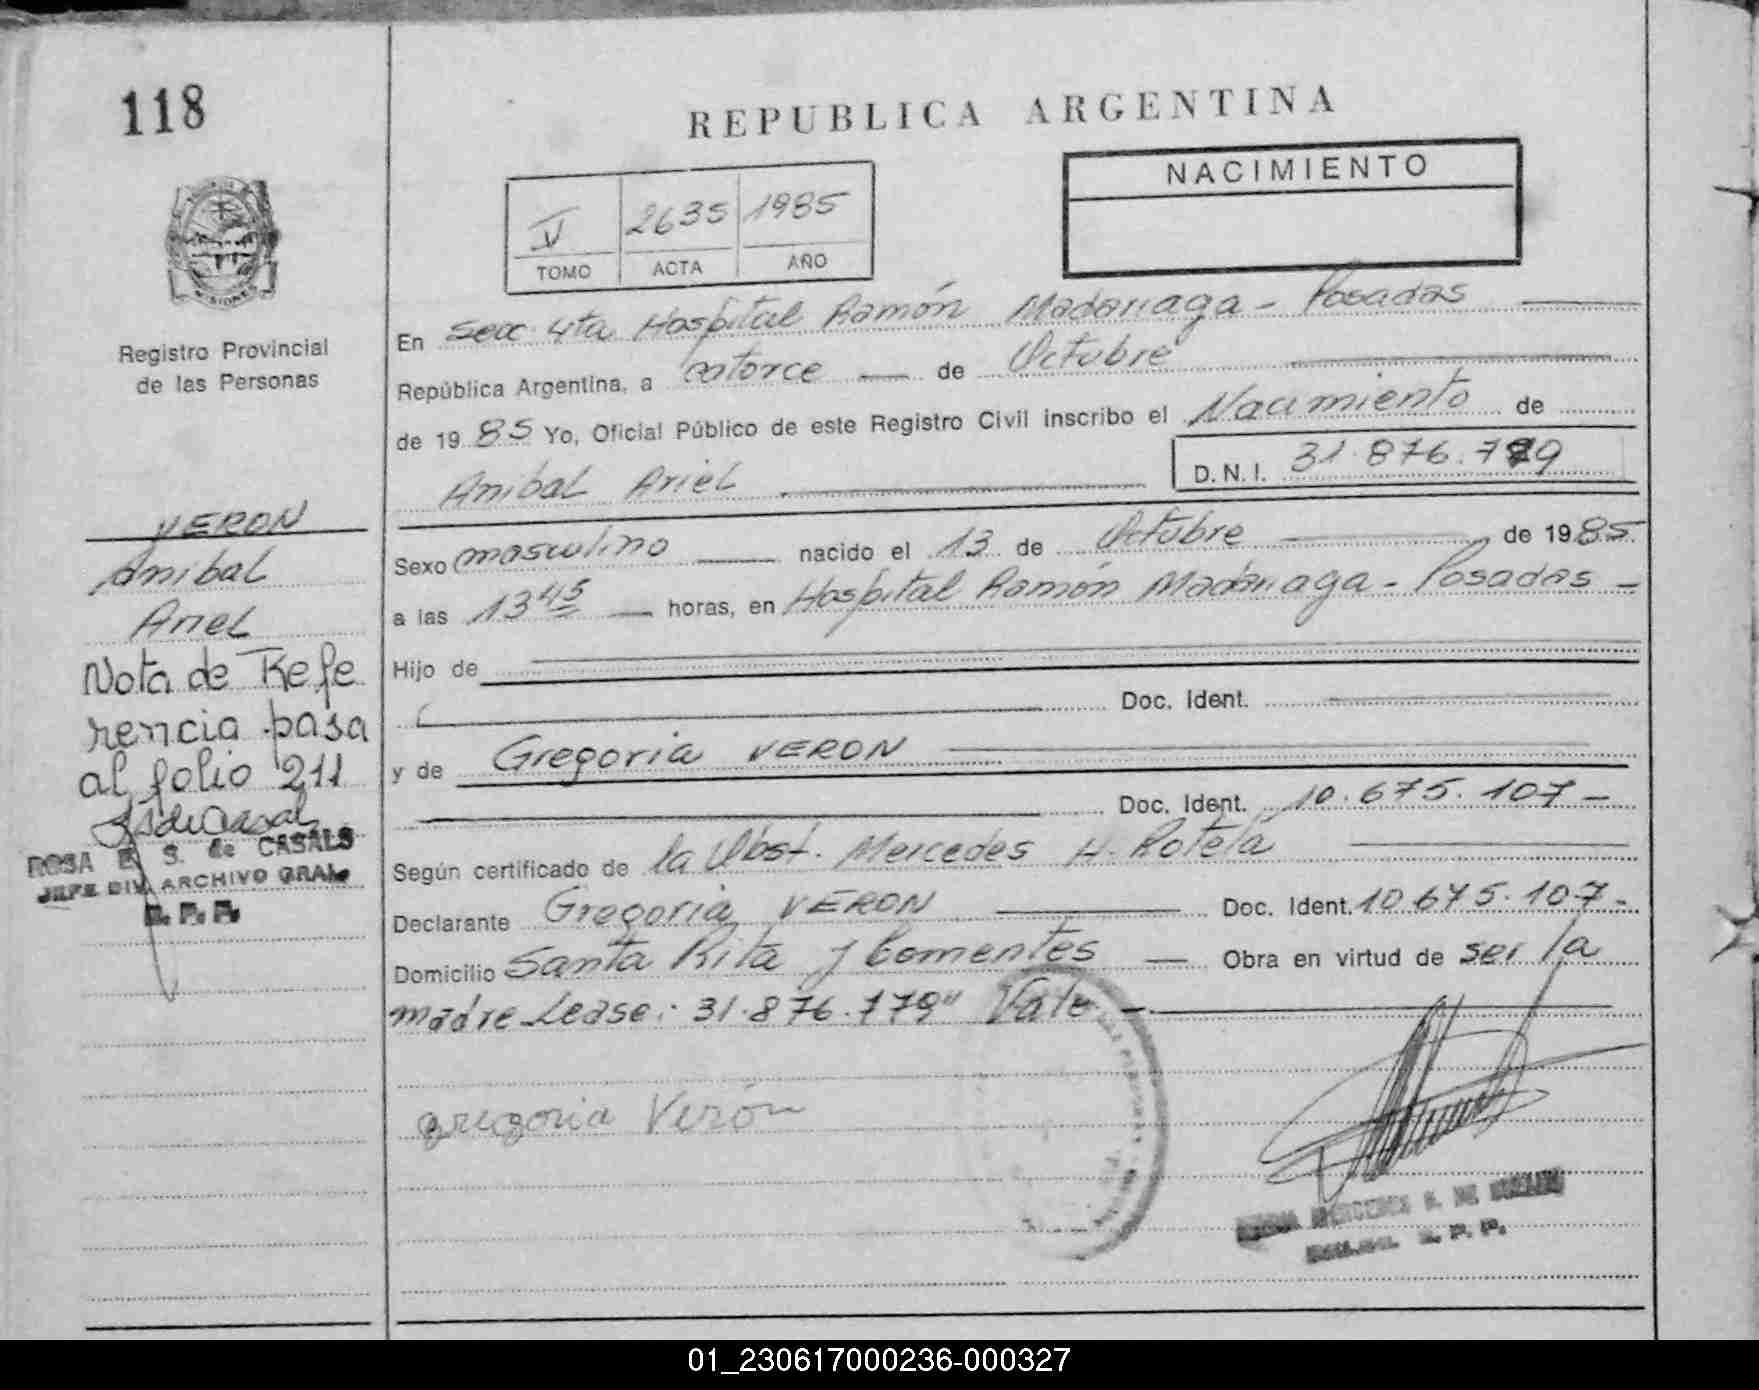 118
REPUBLICA ARGENTINA
NACIMIENTO
V 2635 1985
TOMO ACTA AÑO
MISIONES
Registro Provincial
de las Personas
En Secc 4ta Hospital Ramón Madariaga - Posadas
República Argentina, a catorce de Octubre
de 1985 Yo, Oficial Público de este Registro Civil inscribo el Nacimiento de
Anibal Ariel D.N.I. 31.876.779
VERON
Anibal
Ariel
Nota de Refe
rencia pasa
al folio 211
ROSA E. S. de CASALS
JEFE DIV. ARCHIVO GRAL.
R. P. P.
Sexo masculino nacido el 13 de Octubre de 1985
a las 13 45 horas, en Hospital Ramón Madariaga - Posadas -
Hijo de
Doc. Ident.
y de Gregoria VERON
Doc. Ident. 10.675.107 -
Según certificado de la Obst. Mercedes H. Rotela
Declarante Gregoria VERON Doc. Ident. 10.675.107 -
Domicilio Santa Rita y Corrientes Obra en virtud de ser la
madre Lease: 31.876.779" Vale
gregoria Verón
MERCEDES DE
R. P. P.
01_230617000236-000327